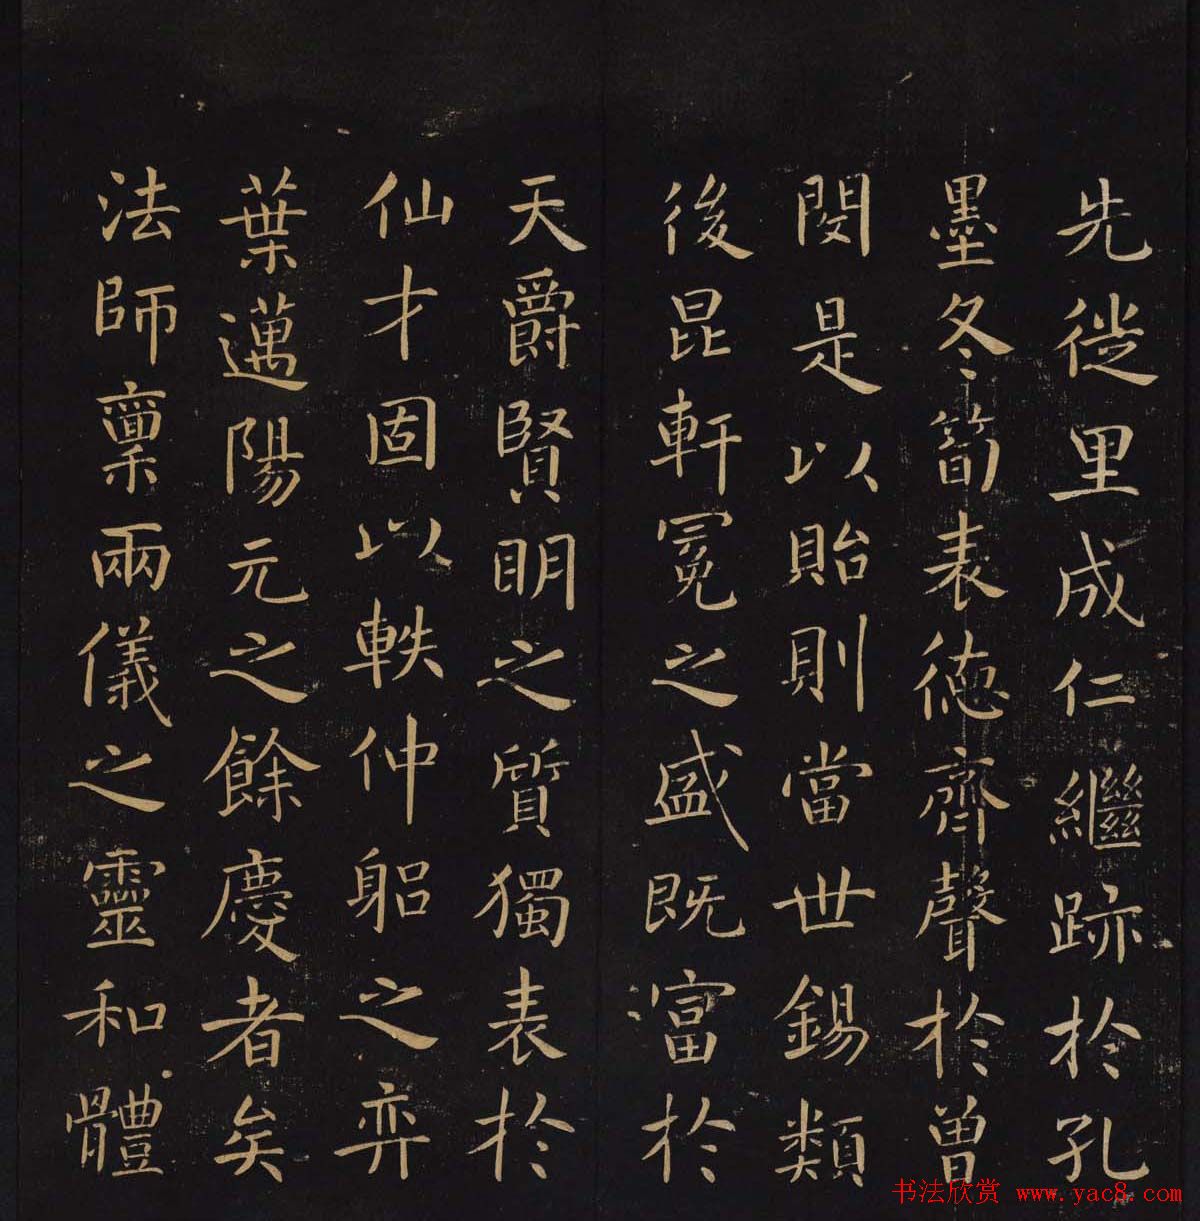 先徙里成仁繼跡於孔
墨冬筍表德齊聲於曾
閔是以貽則當世錫類
後昆軒冕之盛既富於
天爵賢明之質獨表於
仙才固以軼仲躬之弈
葉邁陽元之餘慶者矣
法師稟兩儀之靈和體
书法欣赏 www.yac8.com